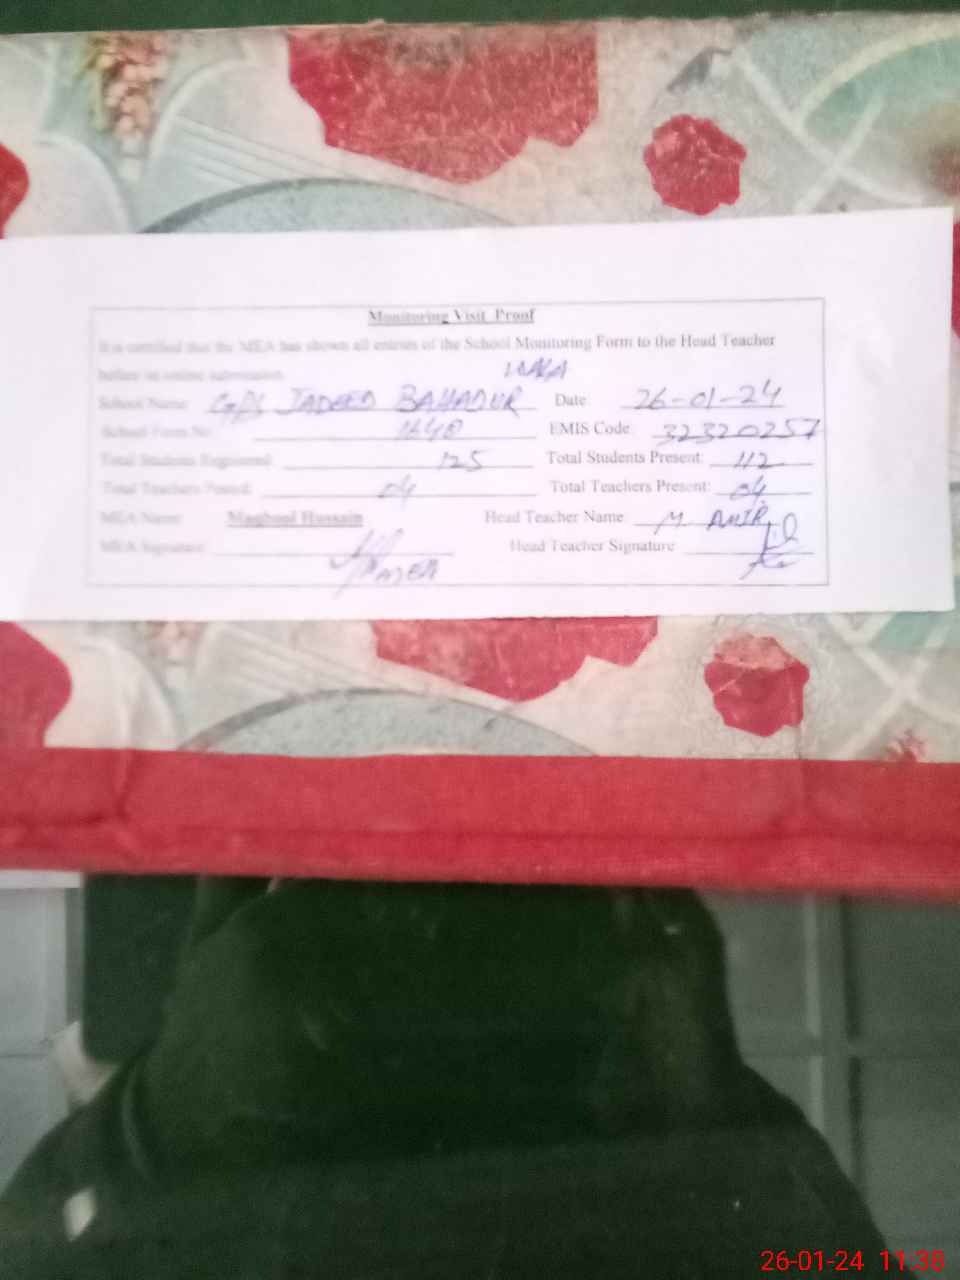 Monitoring Visit Proof
It is certified that the MEA has shown all entries of the School Monitoring Form to the Head Teacher
before its online submission
School Name GPS JADEED BAHADUR Date 26-01-24
School Form No: 1640 EMIS Code: 32320257
Total Students Registered: 125 Total Students Present: 112
Total Teachers Posted: 04 Total Teachers Present: 04
MEA Name: Maqbool Hussain Head Teacher Name: M. AMIR
MEA Signature: MEA Head Teacher Signature:
26-01-24 11:38